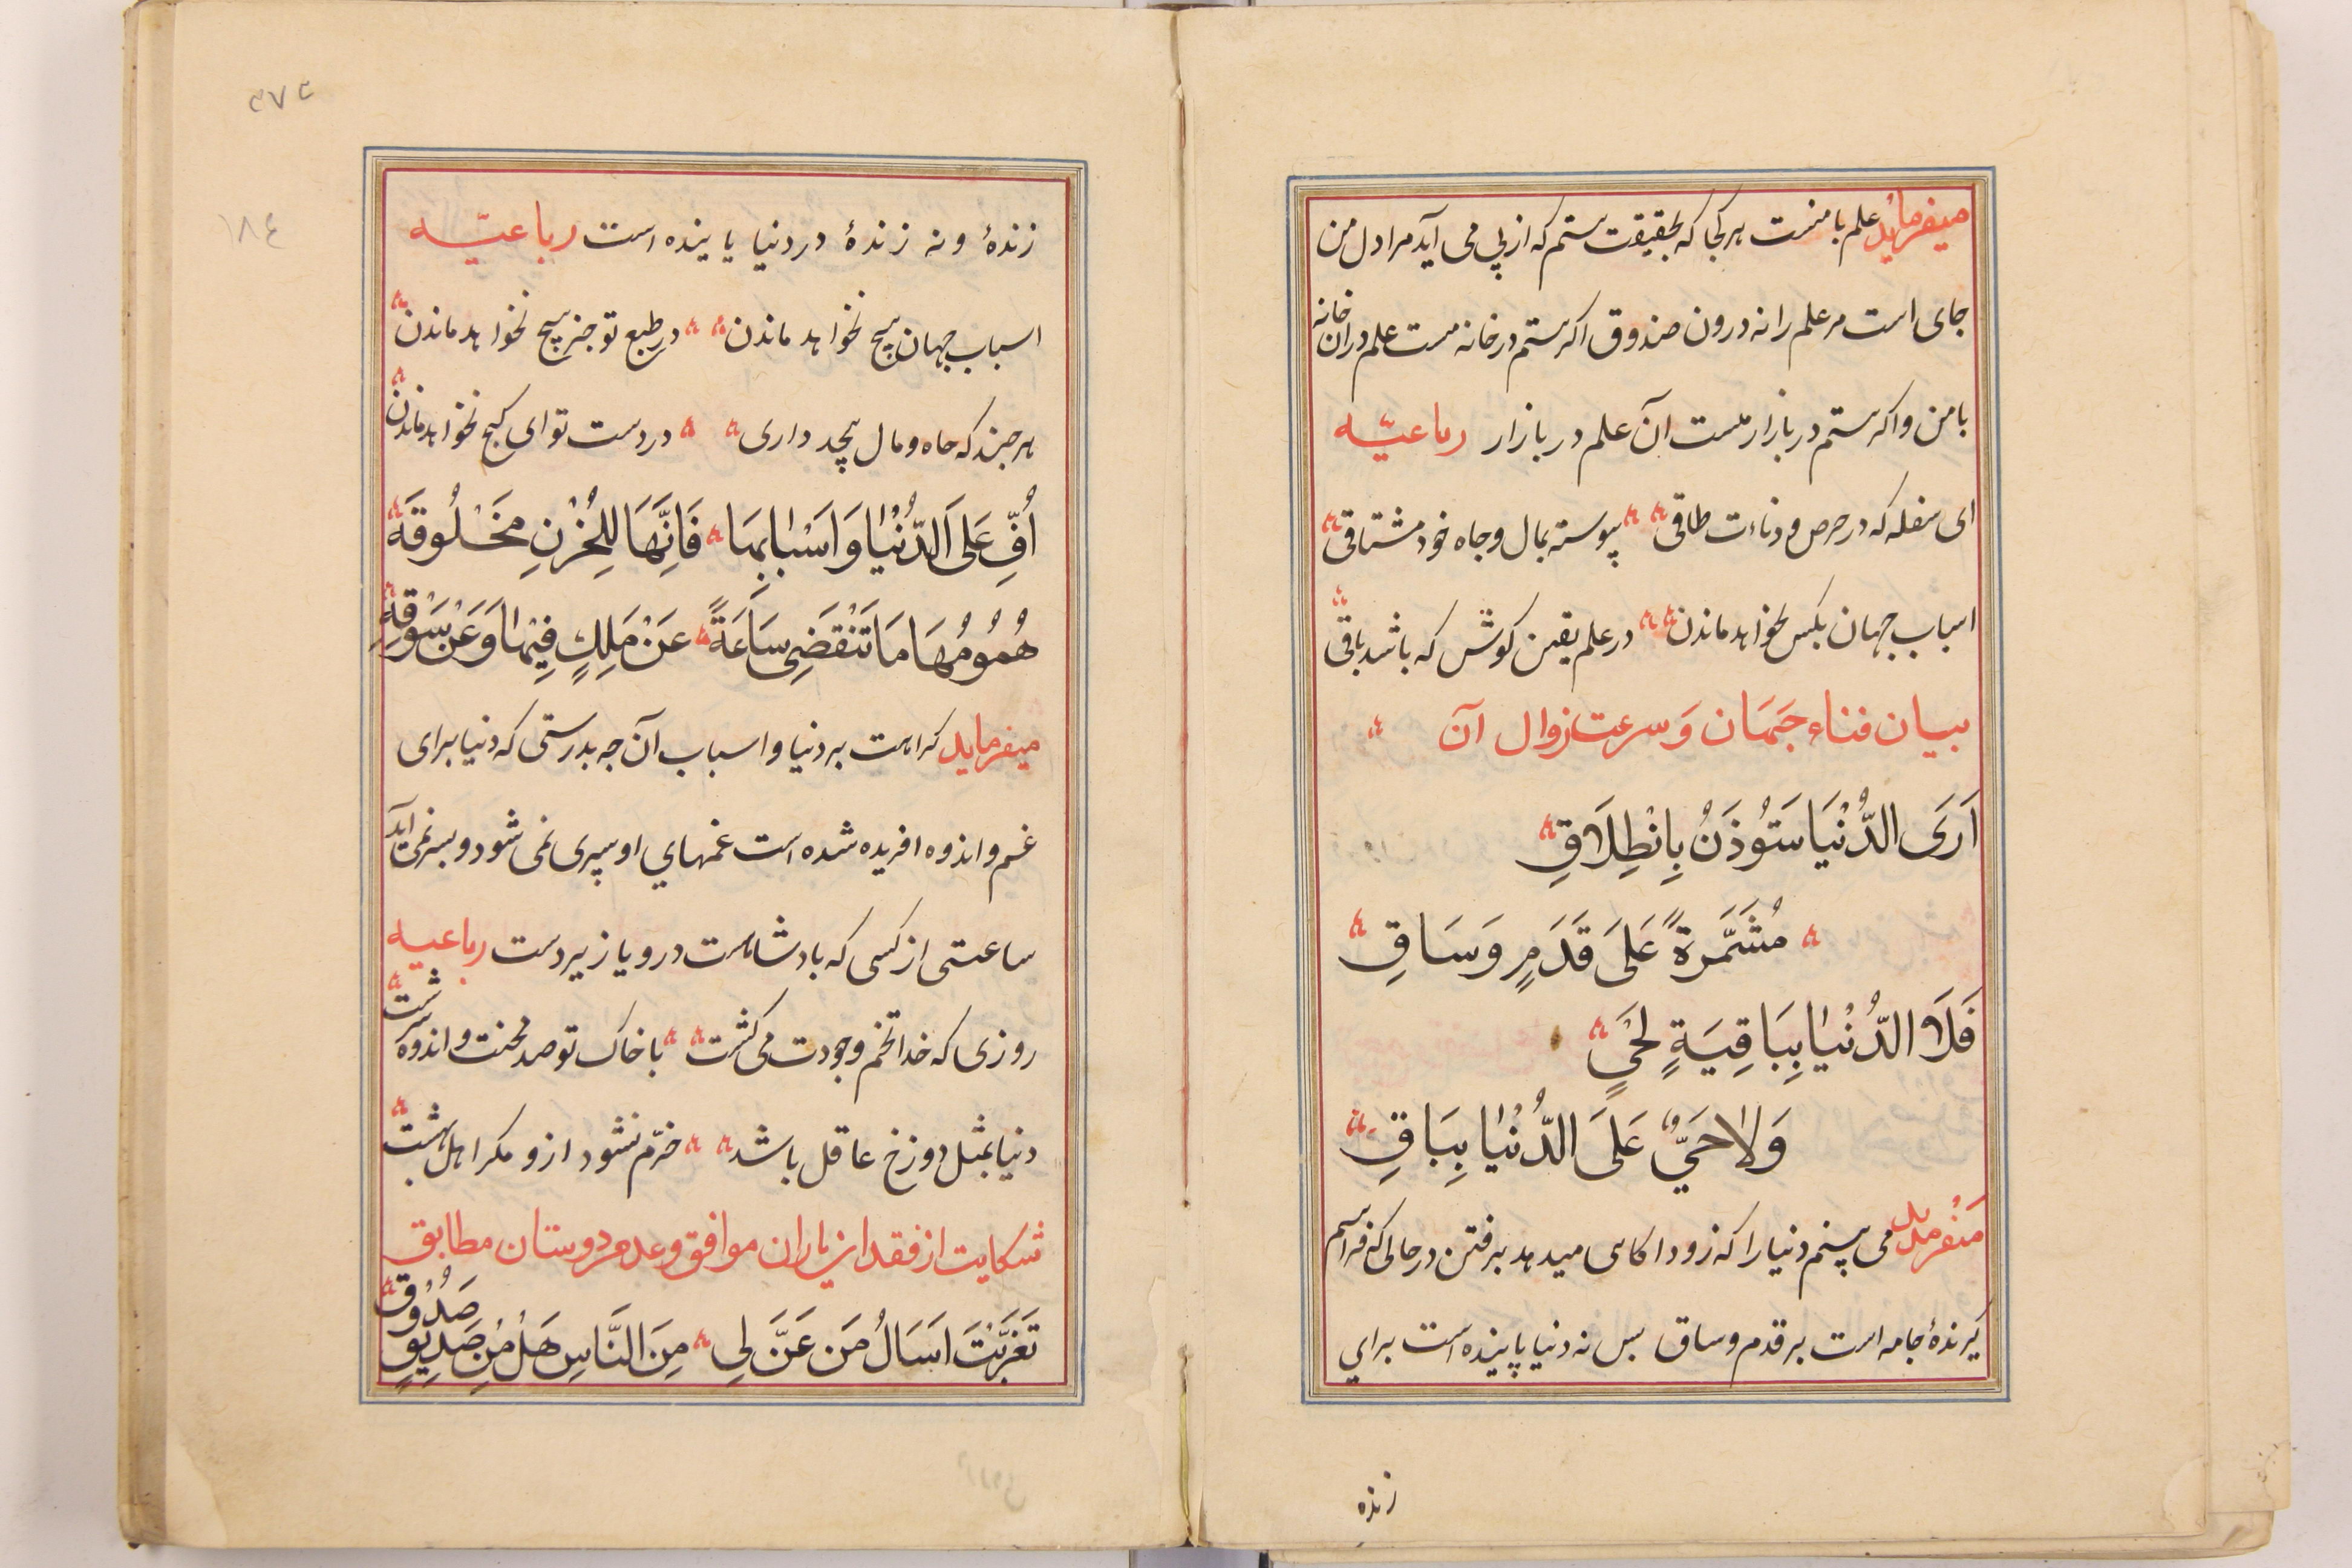 میفرماید علم با منست هر کجا که بحقیقت هستم که از پی می آید مرا دل من
جای است مر علم را نه درون صندوق اکر هستم در خانه هست علم دران خانه
با من و اکر هستم در بازار هست آن علم در بازار رباعیّه
ای سفله که در حرص و دناءت طاقی پیوسته بمال و جاه خود مشتاقی
اسباب جهان بکس نخواهد ماندن در علم یقین کوش که باشد باقی
بیان فناء جَهَان وَ سرعت زوال آن
اَرَی الدُّنْیَا سَتُوذَنُ بِانْطِلَاقٍ
مُشَمَّرةً عَلَی قَدَمٍ وَسَاقٍ
فَلَا الدُّنْیٰا بِبَاقِیَةٍ لِحَیٍّ
وَلاٰ حَیٌّ عَلَی الدُّنْیٰا بِبَاقٍ
میفرماید می بینم دنیا را که زود اکاهی میدهد برفتن در حالی که فراهم
کیرندهٔ جامه است بر قدم و ساق بس نه دنیا پاینده است برای
زنده
۳۷۳
۱۸٤
زندهٔ و نه زندهٔ در دنیا پاینده است رباعیّه
اسباب جهان هیچ نخواهد ماندن در طبع تو جز هیچ نخواهد ماندن
هر جند که جاه و مال بیحد داری در دست تو ای کیج نخواهد ماندن
اُفٍّ عَلَی الدُّنْیٰا وَ اَسْبٰابِهَا فَاِنَّهَا لِلْحُزْنِ مَخْلُوقَه
هُمُومُهَا مَا تَنْقَضِی سَاعَةً عَنْ مَلِكٍ فِیْهٰا وَ عَنْ سَوْقِهِ
میفرماید کراهت بر دنیا و اسباب آن جه بدرستی که دنیا برای
غم و اندوه افریده شده است غمهای او سپری نمی شود و بسر نمی آید
ساعتی از کسی که بادشاهست درو یا زیردست رباعیه
روزی که خدا تخم وجودت می کشت با خاک تو صد محنت و اندوه سرشت
دنیا بمثل دوزخ عاقل باشد خرّم نشود ازو مکر اهل بهشت
شکایت از فقدان یاران موافق و عدم دوستان مطابق
تَغَرَّبْتَ اَسَالُ مَن عَنَّ لِی مِنَ النَّاسِ هَلْ مِنْ صَدِیقٍ صَدُوقٍ